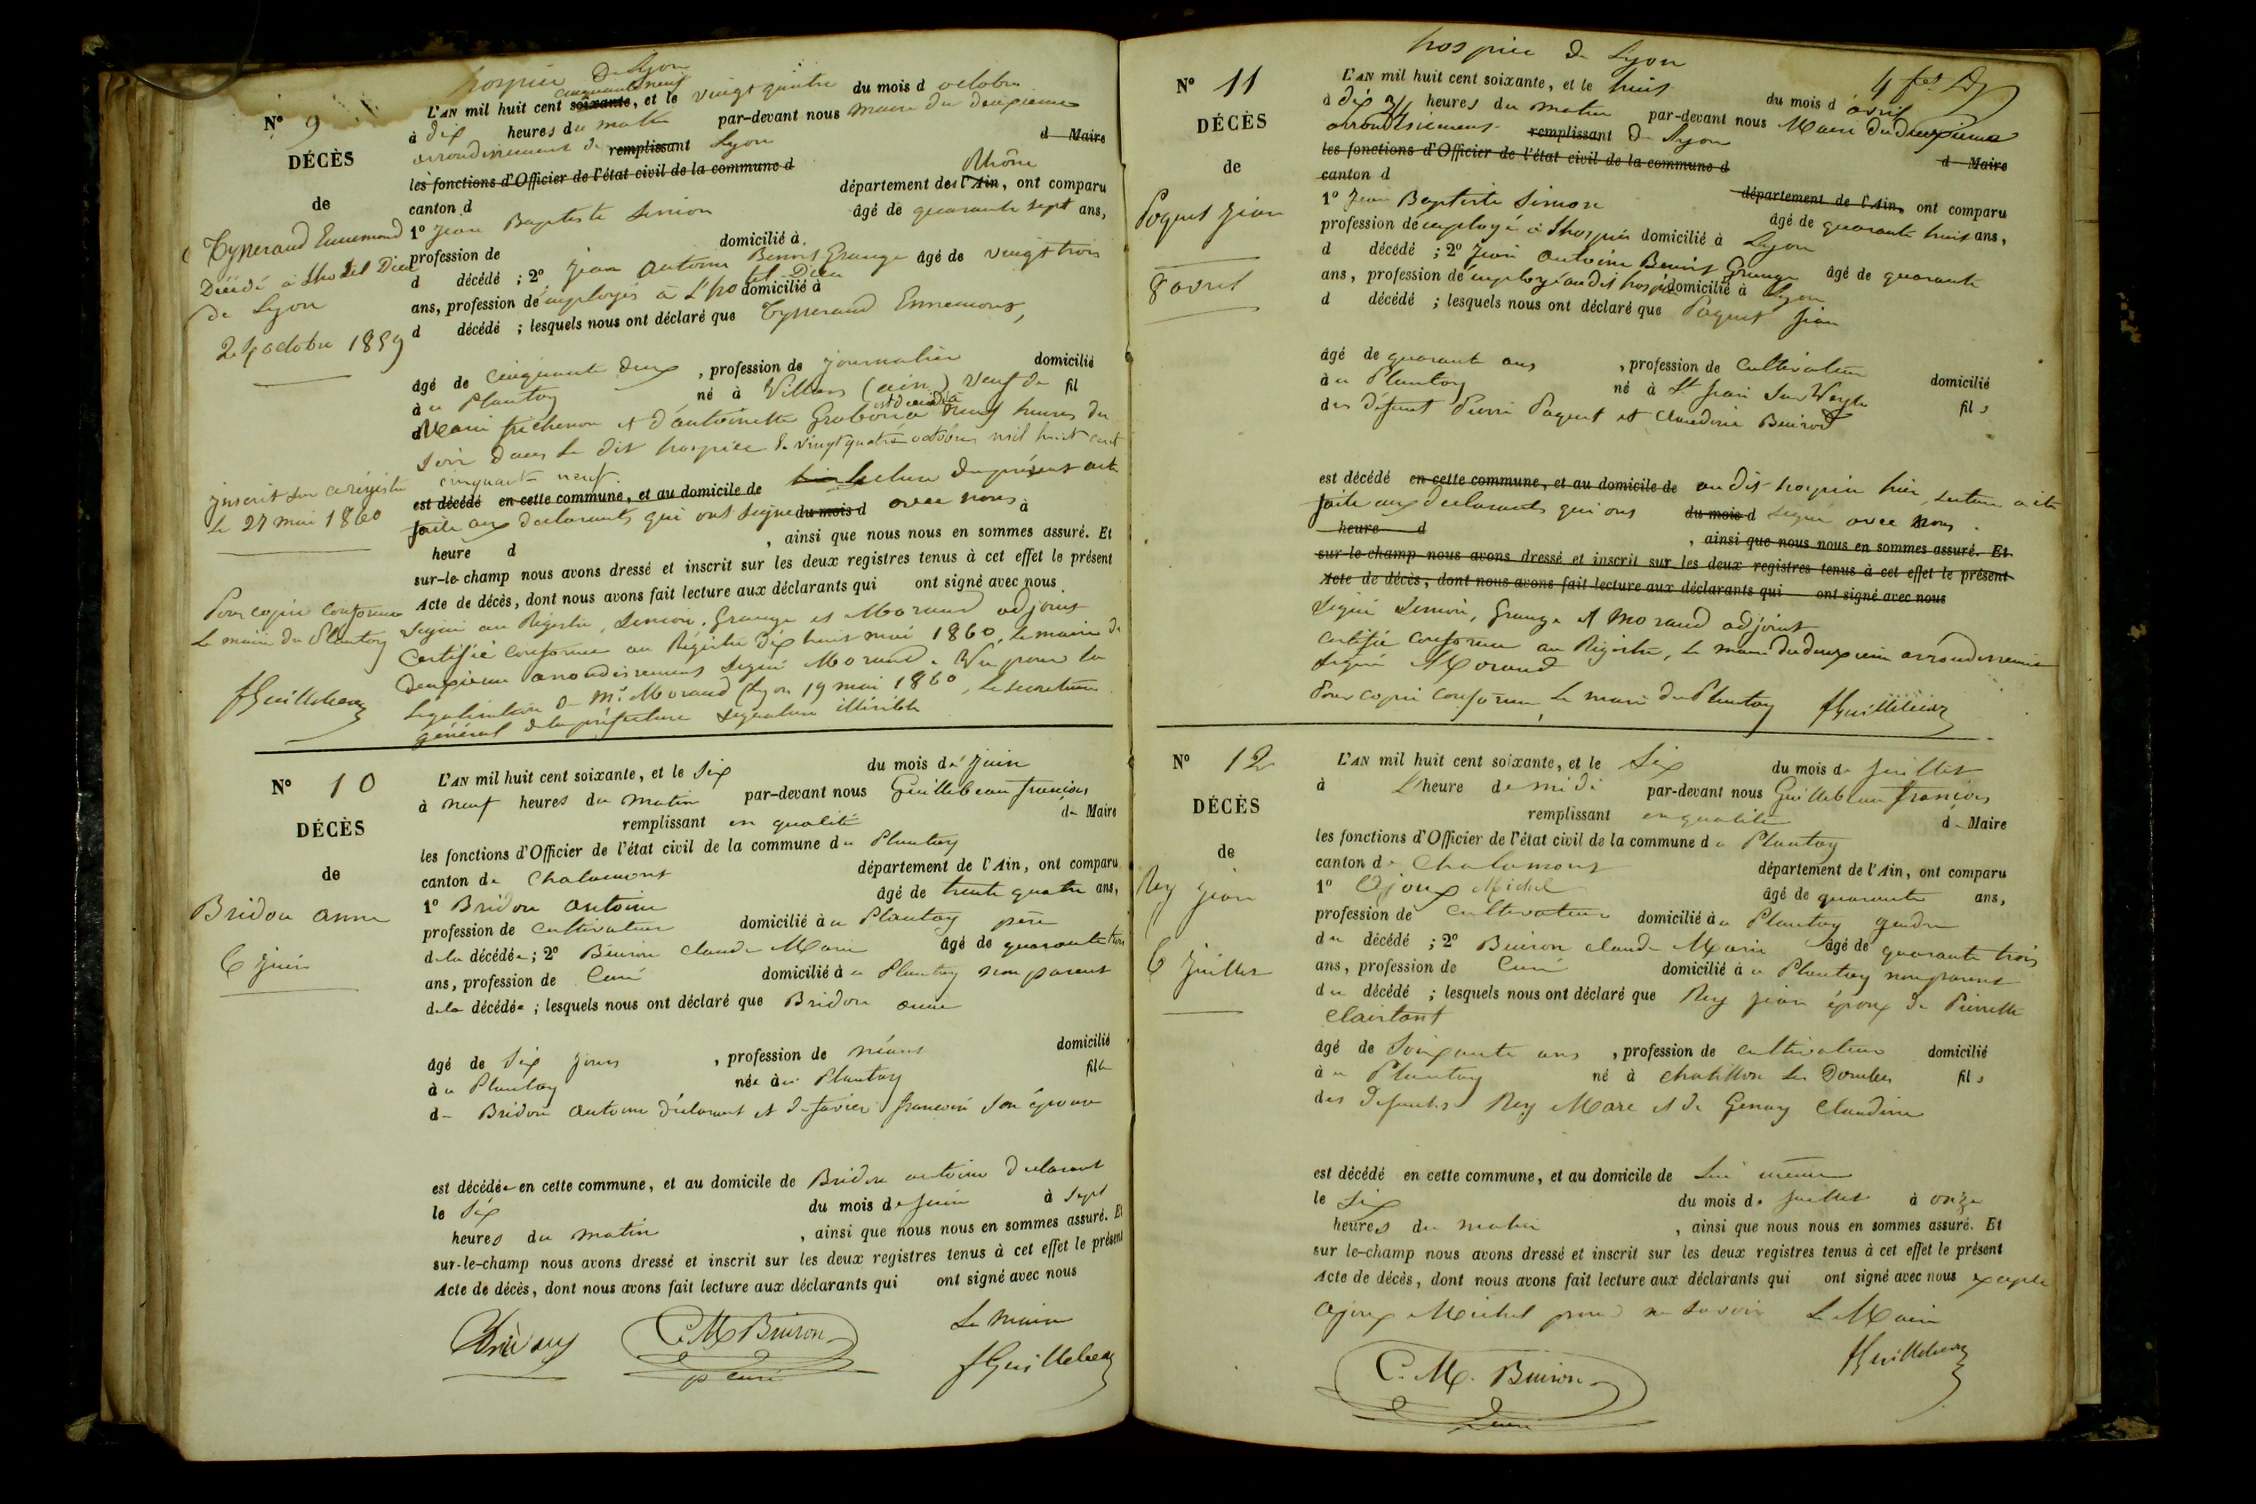 hospice De Lyon
cinquante neuf
N° 9
L'AN mil huit cent soixante, et le vingt quatre du mois d octobre
à dix heures du matin par-devant nous maire du deuxieme
DÉCÈS
arrondissement de remplissant Lyon d Maire
les fonctions d'Officier de l'état civil de la commune d Rhône
de
canton d département de l'Ain, ont comparu
Typperaud Ennemond
1° Jean Baptiste Simion âgé de quarante sept ans,
Décédé à Lhotel Dieu
profession de domicilié à
de Lyon
d décédé ; 2° Jean Antoine Benoit Grange âgé de vingt trois
ans, profession de employés à L'hotel-Dieu domicilié à
24 octobre 1859
d décédé ; lesquels nous ont déclaré que Typperaud Ennemond,
âgé de cinquante deux , profession de journalier domicilié
à u Plantay né à Villars (ain) Veuf de fil
d Marie et d'antoinette est décédé à neuf heures du
soir dans le dit hospice le vingt quatre octobre mil huit cent
cinquante neuf.
inscrit sur ce régistre
le 27 mai 1860
est décédé en cette commune, et au domicile de Lecture du présent acte
faite aux declarants qui ont signe du mois d avec nous à
heure d , ainsi que nous nous en sommes assuré. Et
sur-le-champ nous avons dressé et inscrit sur les deux registres tenus à cet effet le présent
Acte de décès, dont nous avons fait lecture aux déclarants qui ont signé avec nous
Pour copie conforme
Le maire du Plantay
fGuillebeau
Signé au Régistre, Simion, Grange et Morand adjoint
Certifié conforme au Régistre Dix huit mai 1860, le maire du
Deuxieme arrondissement signé Morand. Vu pour la
Legalisation de Mr Morand Lyon 19 mai 1860, le secretaire
général de la préfecture signature illisible
N° 10
L'AN mil huit cent soixante, et le Six du mois de Juin
à neuf heures du matin par-devant nous Guillebeau françois
DÉCÈS
remplissant en qualité de Maire
les fonctions d'Officier de l'état civil de la commune du Plantay
de
canton de Chalamont département de l'Ain, ont comparu
Bridon anne
1° Bridon antoine âgé de trente quatre ans,
profession de cultivateur domicilié à u Plantay père
6 juin
de la décédée ; 2° Buiron claude Marie âgé de quarante trois
ans, profession de Curé domicilié à u Plantay non parent
de la décédée ; lesquels nous ont déclaré que Bridon anne
âgé de Six jours , profession de néant domicilié
à u Plantay née à u Plantay fille
de Bridon antoine déclarant et de favier francoise son épouse
est décédée en cette commune, et au domicile de Bridon antoine declarant
le Six du mois de juin à sept
heures du matin , ainsi que nous nous en sommes assuré. Et
sur-le-champ nous avons dressé et inscrit sur les deux registres tenus à cet effet le présent
Acte de décès, dont nous avons fait lecture aux déclarants qui ont signé avec nous
C. M. Buiron
curé
Le maire
fGuillebeau
hospice de Lyon
N° 11
L'AN mil huit cent soixante, et le huit du mois d avril
à dix heures du matin par-devant nous Maire du deuxieme
DÉCÈS
arrondissement remplissant De Lyon d Maire
les fonctions d'Officier de l'état civil de la commune d
de
canton d département de l'Ain, ont comparu
Poquet Jean
1° Jean Baptiste Simion âgé de quarante huit ans,
profession de employé à Lhospice domicilié à Lyon
8 avril
d décédé ; 2° Jean Antoine Benoit Grange âgé de quarante
ans, profession de employé au dit hospice domicilié à Lyon
d décédé ; lesquels nous ont déclaré que Paquet Jean
âgé de quarante ans , profession de cultivateur domicilié
à u Plantay né à St Jean Sur Veyle fil s
des défunt Pierre Paquet et claudine
est décédé en cette commune, et au domicile de au dit hospice hier, Lecture a été
faite aux declarants qui ont du mois d signé avec nous.
heure d , ainsi que nous nous en sommes assuré. Et
sur-le-champ nous avons dressé et inscrit sur les deux registres tenus à cet effet le présent
Acte de décès, dont nous avons fait lecture aux déclarants qui ont signé avec nous
Signé Simion, Grange et Morand adjoint
Certifié conforme au Régistre, le maire du deuxieme arrondissement
Signé Morand
Pour copie conforme, Le maire du Plantay fGuillebeau
N° 12
L'AN mil huit cent soixante, et le Six du mois de Juillet
à L'heure de midi par-devant nous Guillebeau françois
DÉCÈS
remplissant en qualité de Maire
les fonctions d'Officier de l'état civil de la commune d u Plantay
de
canton de Chalamont département de l'Ain, ont comparu
Rey Jean
1° Ajoux Michel âgé de quarante ans,
profession de cultivateur domicilié à u Plantay gendre
6 Juillet
du décédé ; 2° Buiron claude Marie âgé de quarante trois
ans, profession de Curé domicilié à u Plantay non parent
du décédé ; lesquels nous ont déclaré que Rey Jean époux de Pierrette
Clairtant
âgé de Soixante ans , profession de cultivateur domicilié
à u Plantay né à chatillon les Dombes fil s
des defunts Rey Marc et de Genay Claudine
est décédé en cette commune, et au domicile de Lui même
le Six du mois de Juillet à onze
heures du matin , ainsi que nous nous en sommes assuré. Et
sur le-champ nous avons dressé et inscrit sur les deux registres tenus à cet effet le présent
Acte de décès, dont nous avons fait lecture aux déclarants qui ont signé avec nous excepté
Ajoux Michel pour ne savoir Le Maire
fGuillebeau
C. M. Buiron
curé